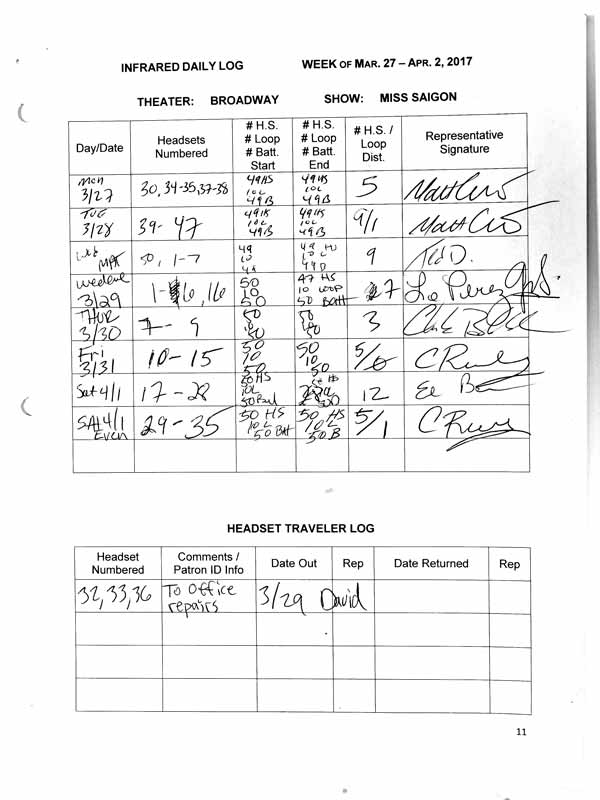 INFRARED DAILY LOG WEEK OF MAR. 27 – APR. 2, 2017
THEATER: BROADWAY SHOW: MISS SAIGON
Day/Date
Headsets
Numbered
# H.S.
# Loop
# Batt.
Start
# H.S.
# Loop
# Batt.
End
# H.S. /
Loop
Dist.
Representative
Signature
Mon
3/27
30, 34-35, 37-38
49HS
10L
49B
49HS
10L
49B
5
TUE
3/28
39- 47
49HS
10L
49B
49HS
10L
49B
9/1
50, 1-7
49
10
49
9
Ted D.
3/29
50
10
50
47 HS
10 LOOP
50 Batt
THUR
3/30
7- 9
50
10
50
50
10
50
3
Fri
3/31
10-15
50
10
50
50
10
50
Sat 4/1
17-28
50 HS
10L
12
SAT 4/1
Even
29-35
50 HS
10 L
50 Batt
50 HS
10L
50 B
5/1
HEADSET TRAVELER LOG
Headset
Numbered
Comments /
Patron ID Info
Date Out
Rep
Date Returned
Rep
32, 33, 36
To Office
repairs
3/29
David
11